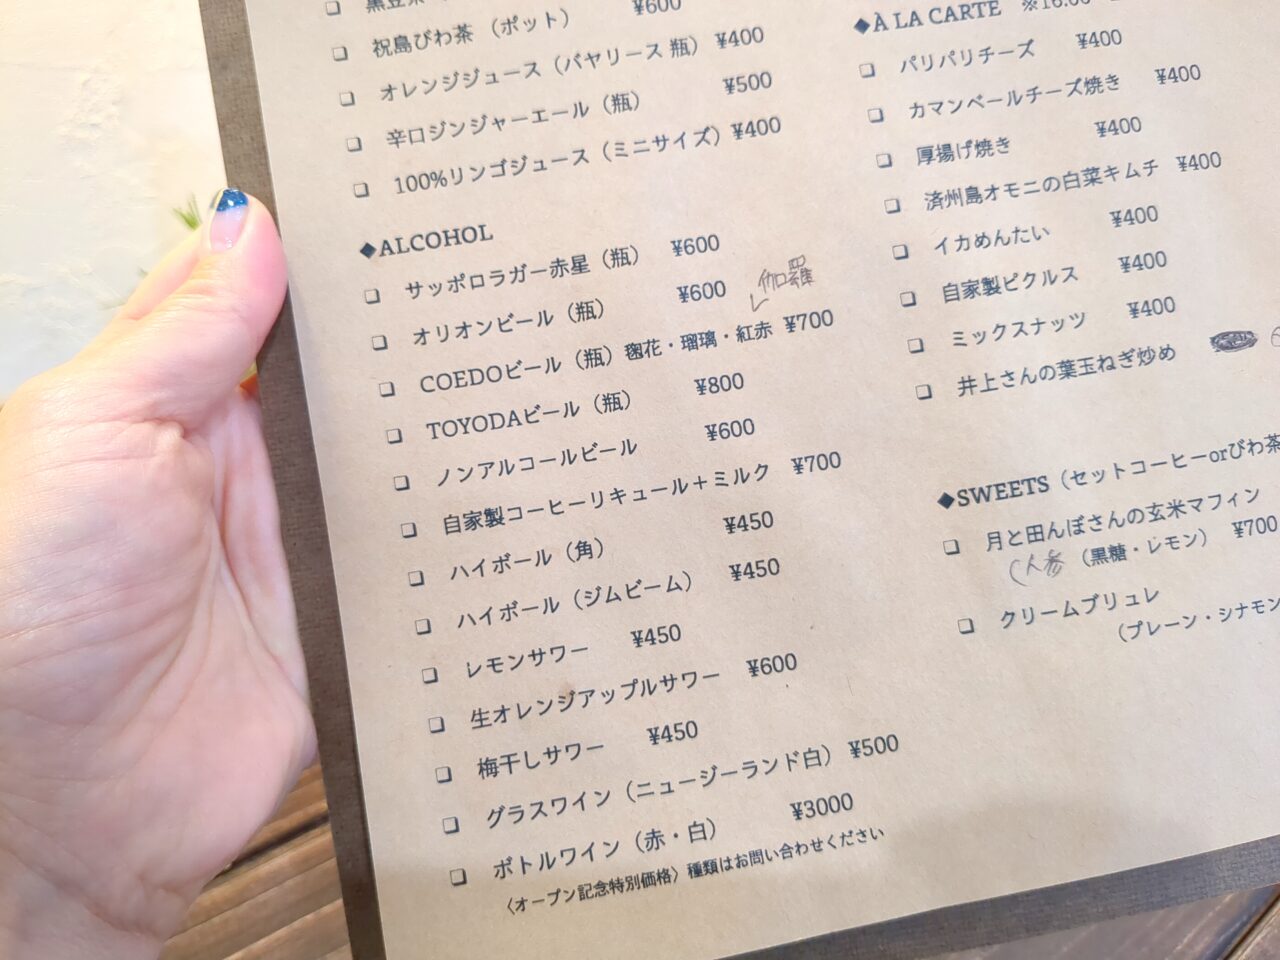 祝島びわ茶（ポット） ¥600
オレンジジュース（バヤリース 瓶） ¥400
辛口ジンジャーエール（瓶） ¥500
100%リンゴジュース（ミニサイズ） ¥400
◆ALCOHOL
サッポロラガー赤星（瓶） ¥600
オリオンビール（瓶） ¥600
伽羅
COEDOビール（瓶）毱花・瑠璃・紅赤 ¥700
TOYODAビール（瓶） ¥800
ノンアルコールビール ¥600
自家製コーヒーリキュール＋ミルク ¥700
ハイボール（角） ¥450
ハイボール（ジムビーム） ¥450
レモンサワー ¥450
生オレンジアップルサワー ¥600
梅干しサワー ¥450
グラスワイン（ニュージーランド白） ¥500
ボトルワイン（赤・白） ¥3000
〈オープン記念特別価格〉種類はお問い合わせください
◆À LA CARTE
パリパリチーズ ¥400
カマンベールチーズ焼き ¥400
厚揚げ焼き ¥400
済州島オモニの白菜キムチ ¥400
イカめんたい ¥400
自家製ピクルス ¥400
ミックスナッツ ¥400
井上さんの葉玉ねぎ炒め
◆SWEETS（セットコーヒーorびわ茶
月と田んぼさんの玄米マフィン
人参（黒糖・レモン） ¥700
クリームブリュレ
（プレーン・シナモン